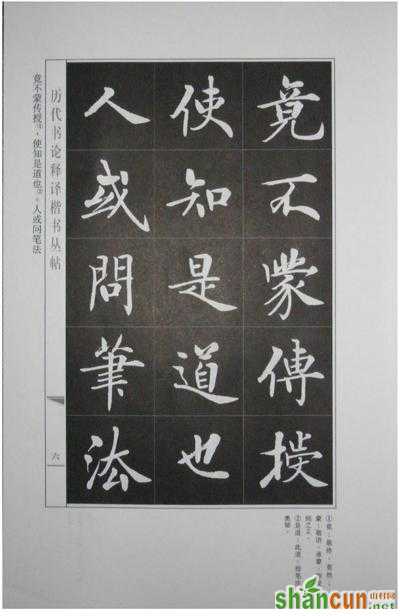 竟不蒙傳授
使知是道也
人或問筆法
历代书论释译楷书丛帖
六
竟不蒙传授①，使知是道也②。人或问笔法
①竟：最终，竟然。
蒙：敬语，承蒙，
②是道：此道，指笔
奥秘。
shancun
山村网
.net